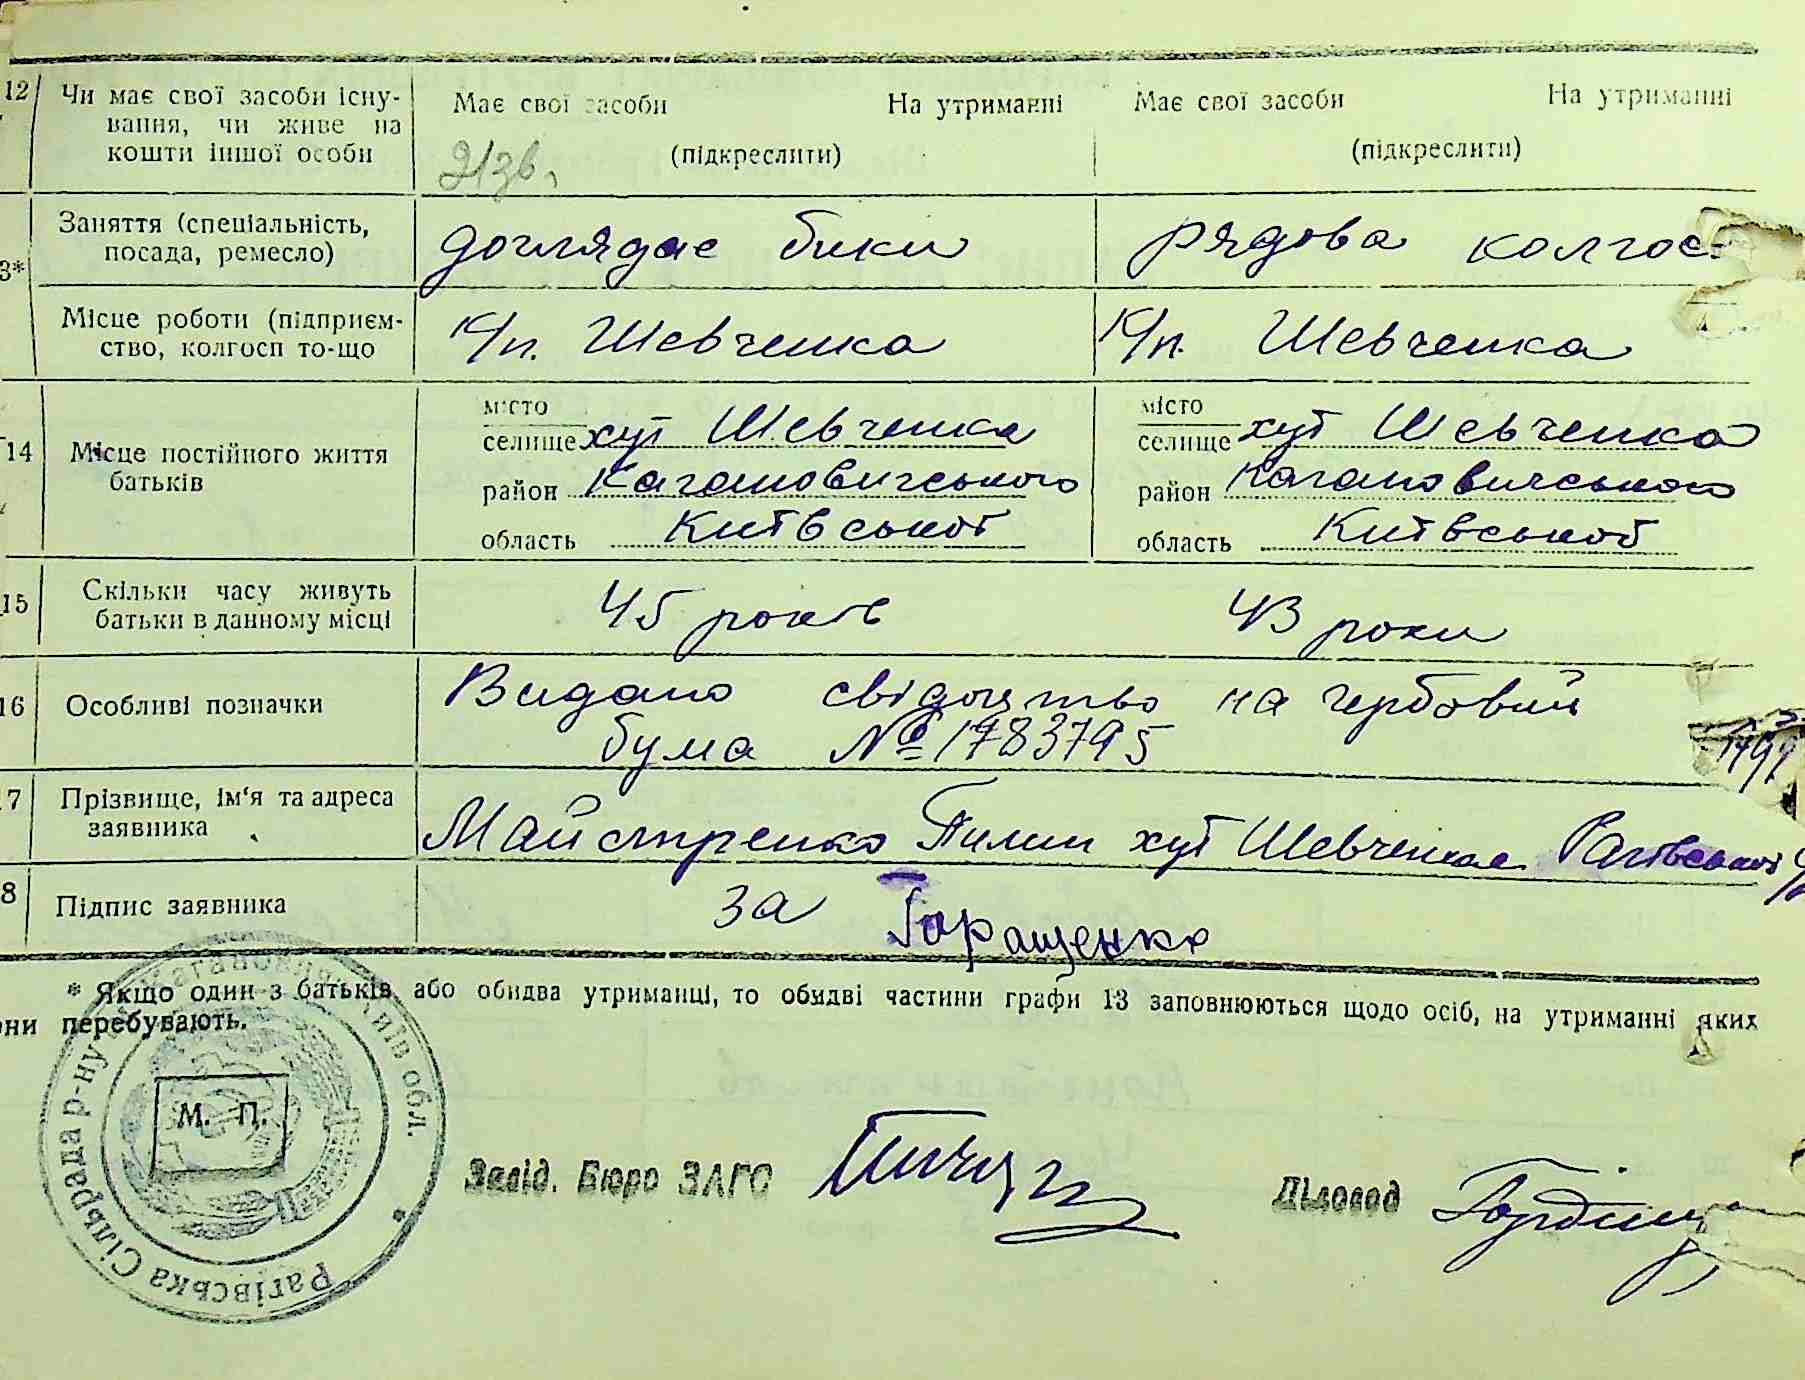 12 Чи має свої засоби існу-
вання, чи живе на
кошти іншої особи
Має свої засоби На утриманні
(підкреслити)
Має свої засоби На утриманні
(підкреслити)
Заняття (спеціальність,
посада, ремесло)
доглядає бики
рядова колгос
3*
Місце роботи (підприєм-
ство, колгосп то-що
К/п. Шевченка
К/п. Шевченка
14 Місце постійного життя
батьків
місто
селище хут Шевченка
район Кагановичського
область Київської
місто
селище хут Шевченка
район Кагановичського
область Київської
15 Скільки часу живуть
батьки в данному місці
45 років
43 роки
16 Особливі позначки
Видано свідоцтво на гербовий
бума № 1783795
7 Прізвище, ім'я та адреса
заявника
Майстренко Пилип хут Шевченка Рагівської
8 Підпис заявника
за Геращенко
* Якщо один з батьків або обидва утриманці, то обидві частини графи 13 заповнюються щодо осіб, на утриманні яких
они перебувають.
Рагівська Сільрада р-ну Київ обл.
М. П.
Завід. Бюро ЗАГС
Діловод